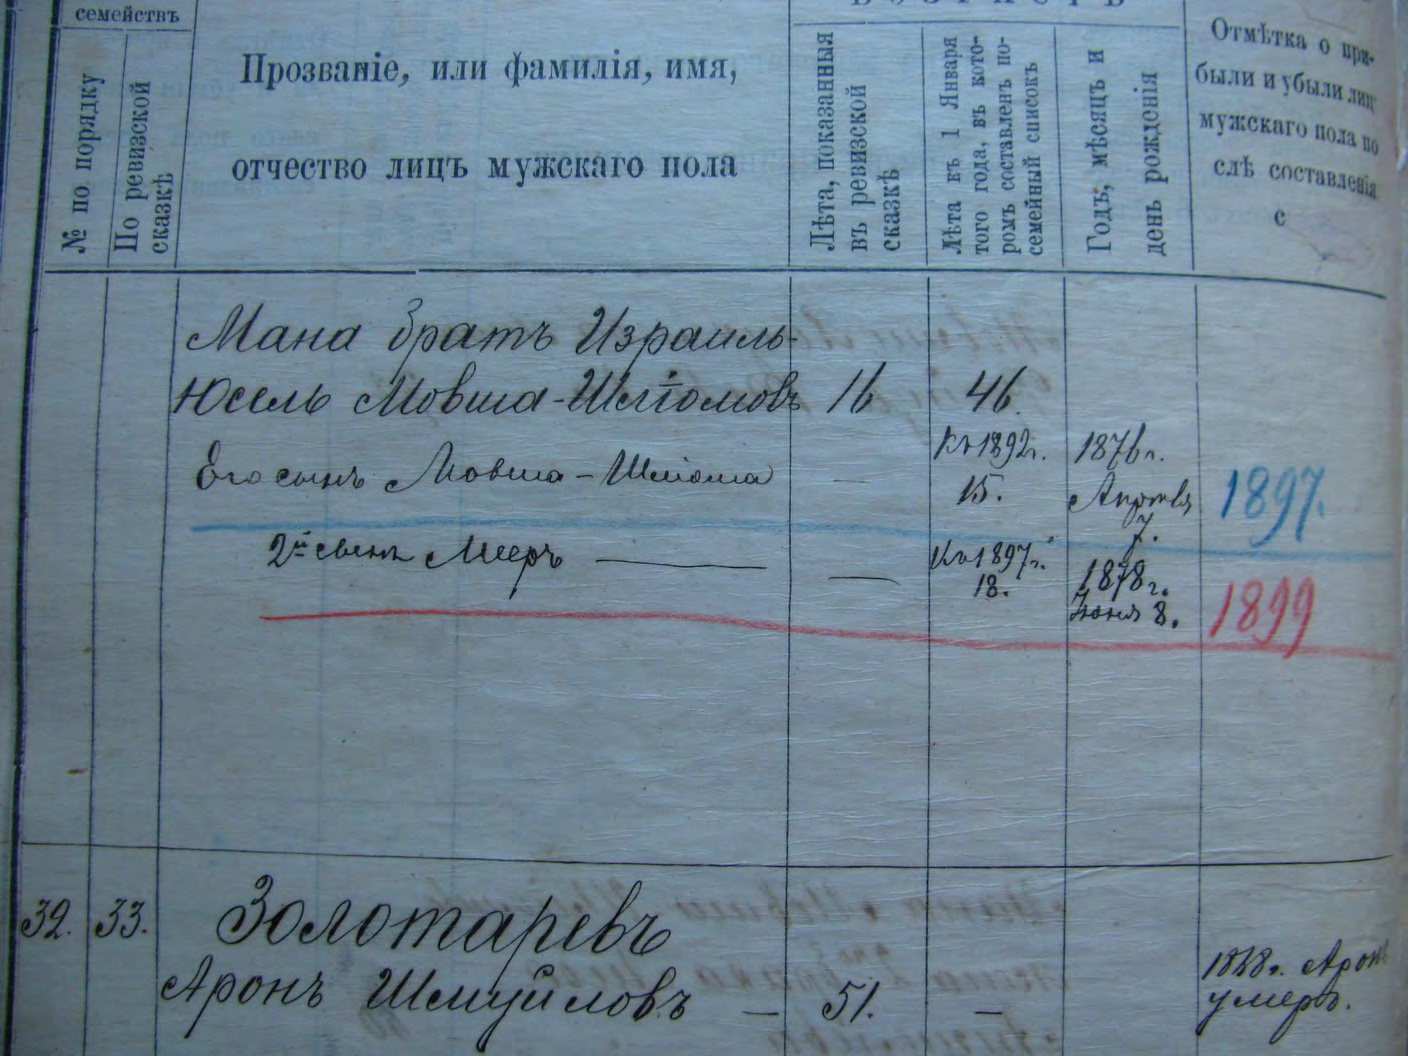 семействъ
№ по порядку
По ревизской
сказкѣ
Прозваніе, или фамилія, имя,
отчество лицъ мужскаго пола
Лѣта, показанныя
въ ревизской
сказкѣ
Лѣта къ 1 Января
того года, въ кото-
ромъ составленъ по-
семейный списокъ
Годъ, мѣсяцъ и
день рожденія
Отмѣтка о при-
были и убыли лицъ
мужскаго пола по
слѣ составленія
с
Мана братъ Израиль-
Юсель Мовша-Шліомовъ 16 46.
Его сынъ Мовша-Шліома — Къ 1892 г. 15. 1876 г. Апрѣля 7. 1897.
2й сынъ Мееръ — — Къ 1897 г. 18. 1878 г. Іюня 8. 1899
32. 33. Золотаревъ
Аронъ Шмуйловъ — 51. — Аронъ
умеръ.